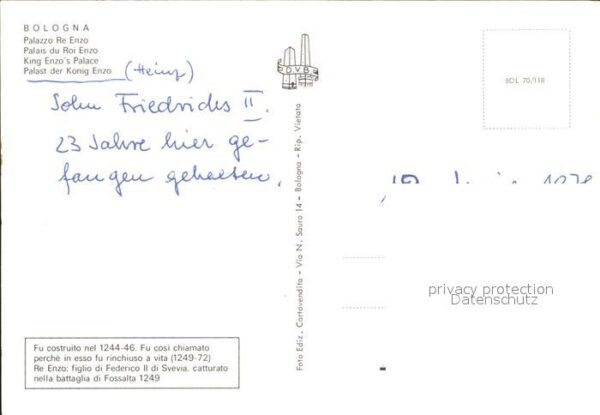 BOLOGNA
Palazzo Re Enzo
Palais du Roi Enzo
King Enzo's Palace
Palast der Konig Enzo (Heinz)
Sohn Friedrichs II.
23 Jahre hier ge-
fangen gehalten.
D.V.B.
Foto Ediz. Cartovendita - Via N. Sauro 14 - Bologna - Rip. Vietata
BOL 70/118
privacy protection
Datenschutz
Fu costruito nel 1244-46. Fu così chiamato
perchè in esso fu rinchiuso a vita (1249-72)
Re Enzo; figlio di Federico II di Svevia, catturato
nella battaglia di Fossalta 1249